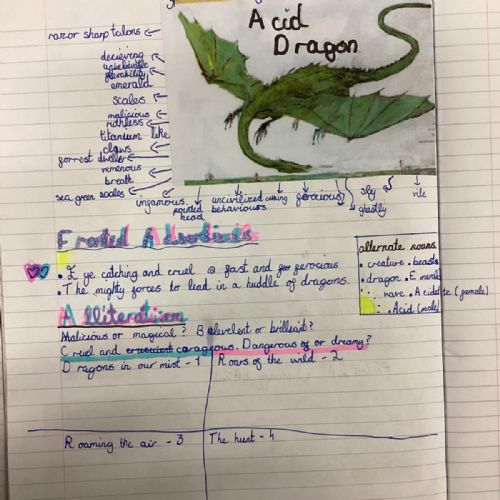 Acid
Dragon
razor sharp talons
decieving
unbelievable
flexability
emerald
scales
malicious
ruthless
titanium like
claws
forrest dweller
venenous
breath
sea green scales
infamous
pointed
head
uncivilized
behaviours
cunning
ferocious
sly
ghastly
vile
Fronted Adverbials
• Eye catching and cruel fast and ferocious
• The mighty forces to lead in a huddle of dragons.
alternate nouns
• creature • beasts
• dragon • Emerald
wave • Acidatite (female)
• Acid (male)
Alliteration
Malicious or magical? Belevelent or brilliant?
Cruel and carageous. Dangerous or dreamy?
Dragons in our mist - 1
Roars of the wild - 2
Roaming the air - 3
The hunt - 4